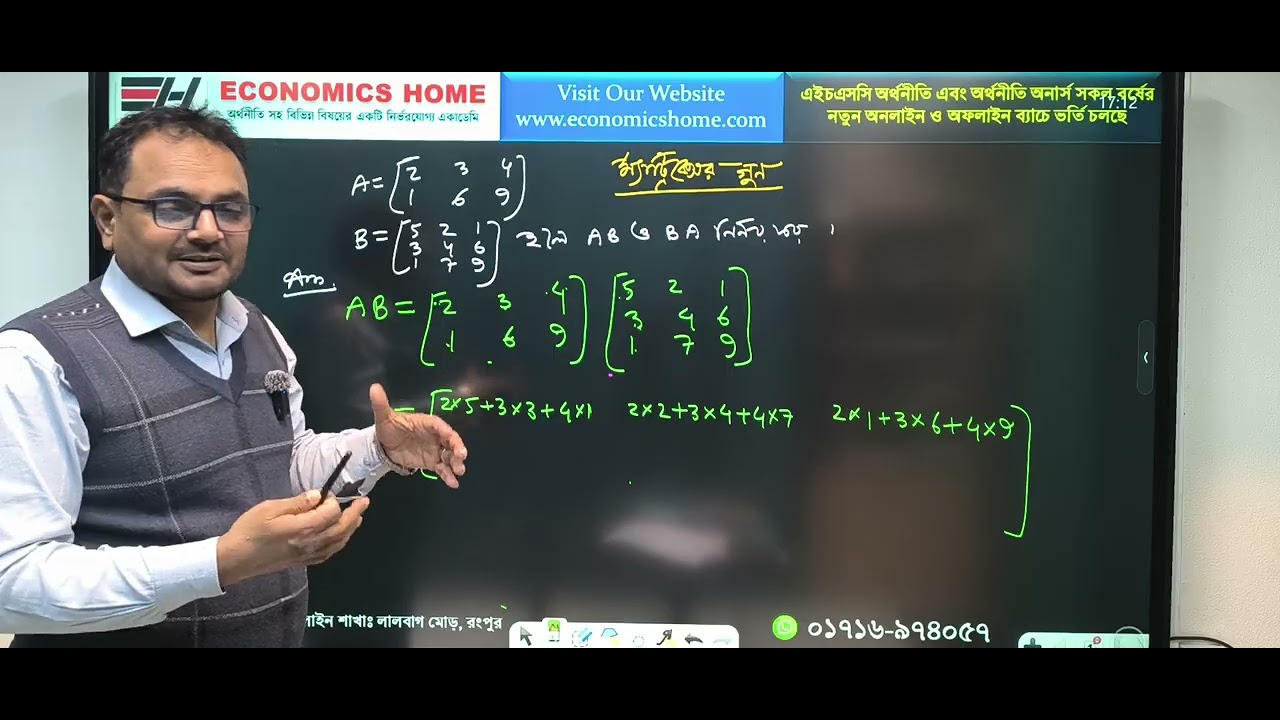 ECONOMICS HOME
অর্থনীতি সহ বিভিন্ন বিষয়ের একটি নির্ভরযোগ্য একাডেমি
Visit Our Website
www.economicshome.com
এইচএসসি অর্থনীতি এবং অর্থনীতি অনার্স সকল বর্ষের
নতুন অনলাইন ও অফলাইন ব্যাচে ভর্তি চলছে
17:12
ম্যাট্রিক্সের গুন
A = [2 3 4
1 6 9]
B = [5 2 1
3 4 6
1 7 9] হলে AB ও BA নির্নয় কর।
Ans.
AB = [2 3 4 [5 2 1
1 6 9] 3 4 6
1 7 9]
= [2×5+3×3+4×1 2×2+3×4+4×7 2×1+3×6+4×9]
লাইন শাখাঃ লালবাগ মোড়, রংপুর
০১৭১৬-৯৭৪০৫৭